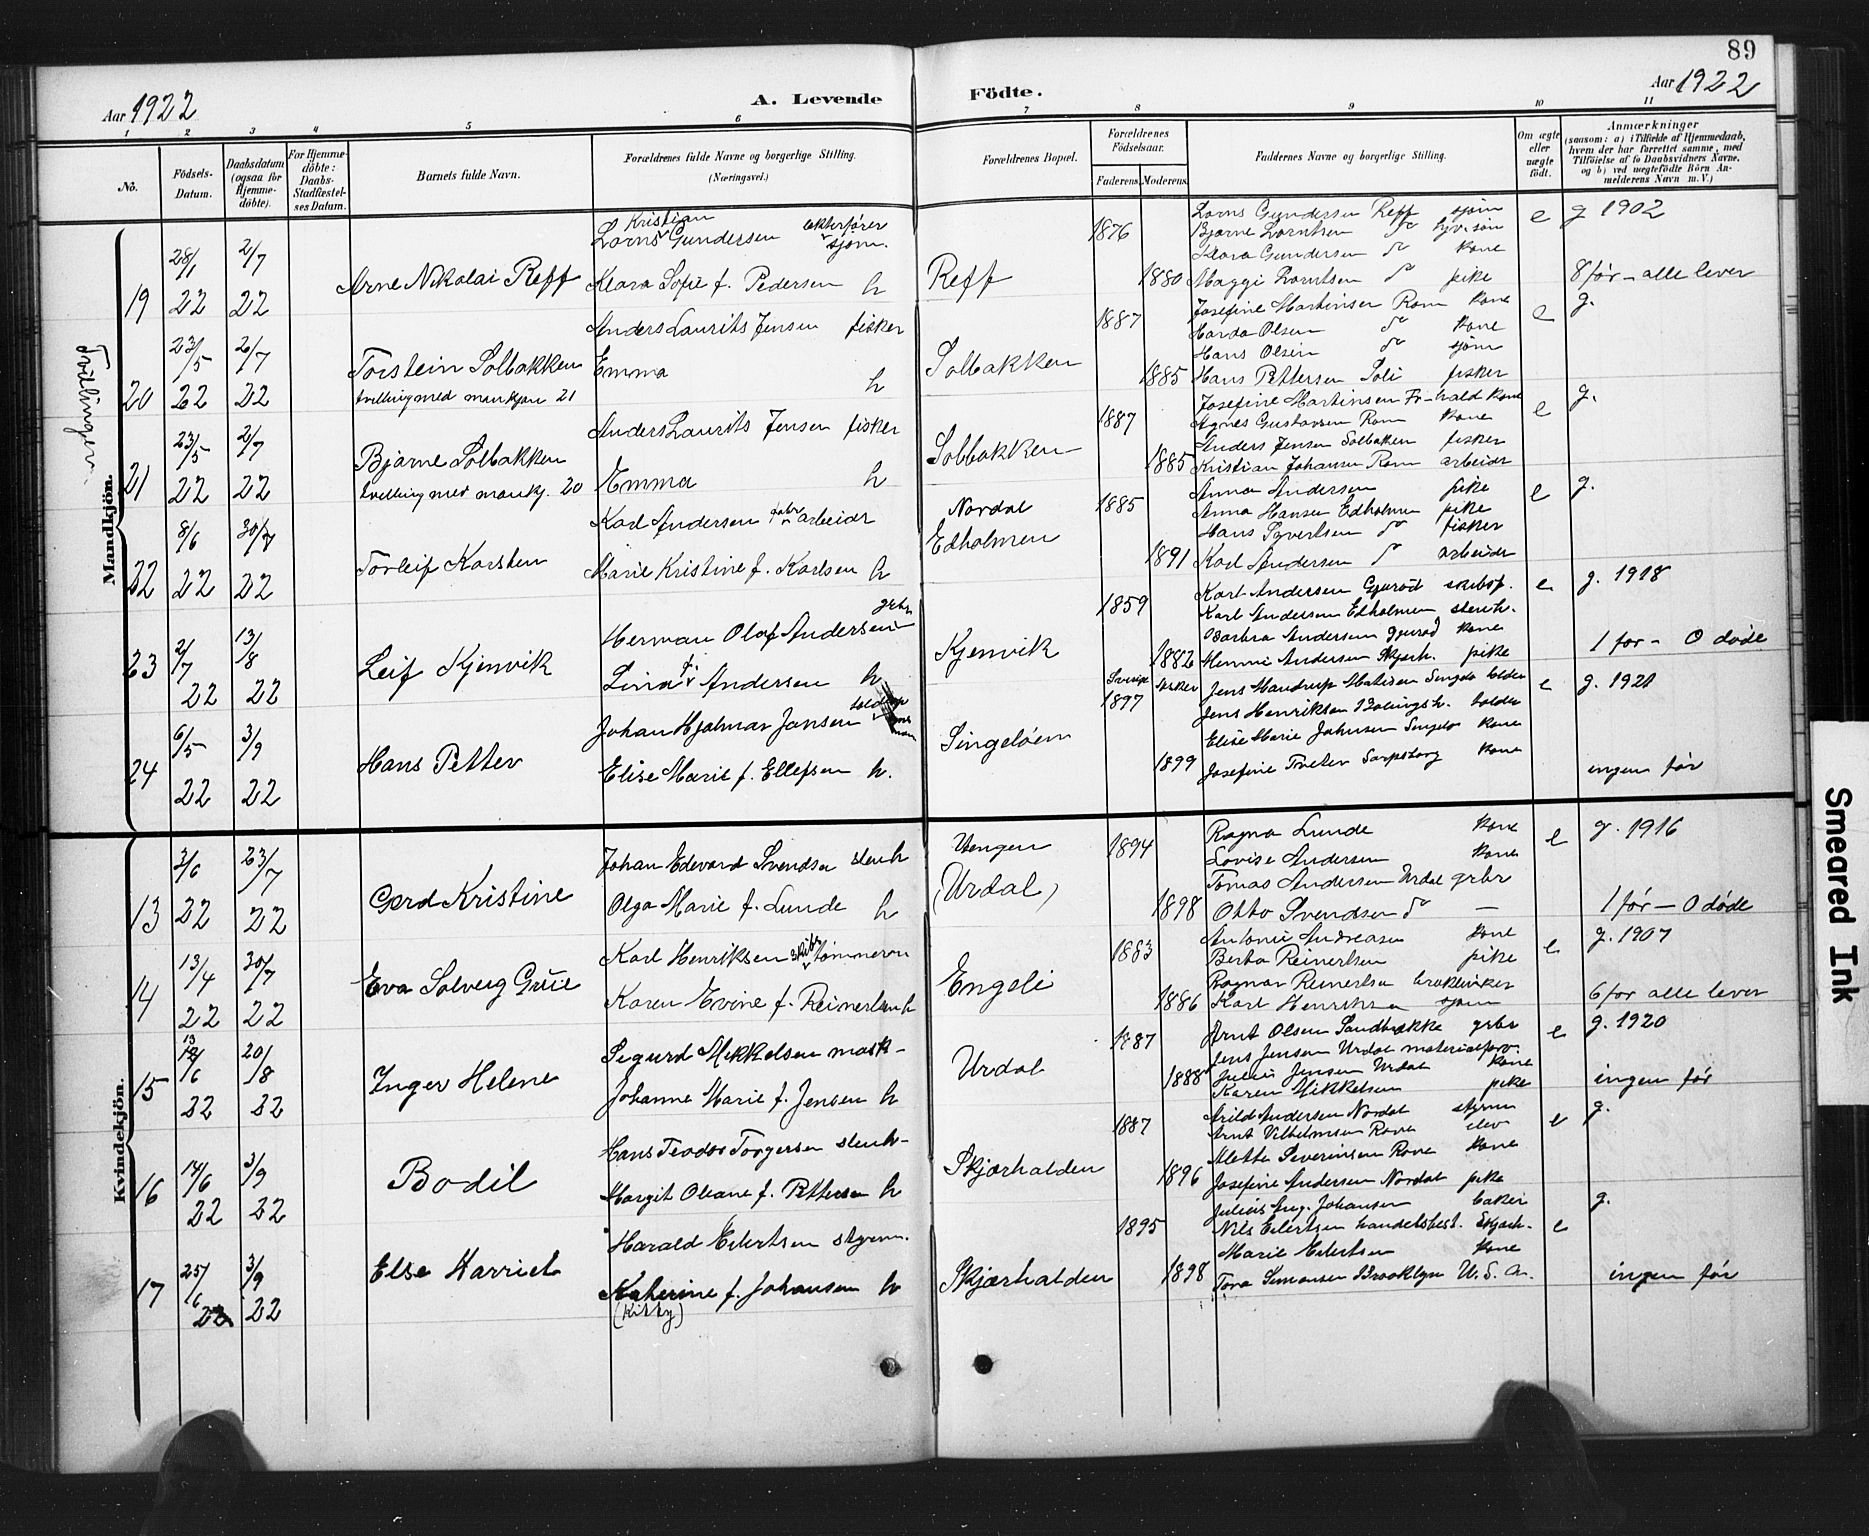 89
Aar 1922
A. Levende
Födte.
Aar 1922
1 2 3 4 5 6 7 8 9 10 11
No.
Födsels-Datum.
Daabsdatum (ogsaa for Hjemme-döbte).
For Hjemme-döbte: Daabs-Stadfæstel-ses Datum.
Barnets fulde Navn.
Forældrenes fulde Navne og borgerlige Stilling.
(Næringsvei.)
Forældrenes Bopæl.
Forældrenes Födselsaar.
Faderens. Moderens.
Faddernes Navne og borgerlige Stilling.
Om ægte eller uægte födt.
Anmærkninger
(saasom: a) i Tilfælde af Hjemmedaab, hvem der har forrettet samme, med Tilföielse af to Daabsvidners Navne, og b) ved uægtefödte Börn Anmelderens Navn m. V.)
Mandkjön.
Tvillinger
19
28/1 22
2/7 22
Arne Nikolai Reff
Kristian
Lorns Gundersen sjøm.
Klara Sofie f. Pedersen h
Reff
1876
1880
Lorns Gundersen Reff sjøm
Bjarne Lorntsen do
Klara Gundersen do kone
Maggi Lorntsen do pike
e
g 1902
8 før – alle lever
20
23/5 22
2/7 22
Torstein Solbakken
tvilling med mankjøn 21
Anders Laurits Jensen fisker
Emma h
Solbakken
1887
1885
Josefine Martinsen Rom kone
Harda Olsen do kone
Hans Olsen do sjøm
Hans Pettersen Soli fisker
e
g.
21
23/5 22
2/7 22
Bjarne Solbakken
tvilling med mankj. 20
Anders Laurits Jensen fisker
Emma h
Solbakken
1887
1885
Josefine Martinsen kone
Agnes Gustavsen Rom kone
Anders Jensen Solbakken fisker
Kristian Johansen Rom arbeider
e
g.
22
8/6 22
30/7 22
Torleif Karsten
Karl Andersen fabr arbeider
Marie Kristine f. Karlsen h
Nordal
Edholmen
1885
1891
Anna Andersen pike
Anna Hansen Edholmen pike
Hans Syvertsen do fisker
Karl Andersen do arbeider
e
g.
23
2/7 22
13/8 22
Leif Kjenvik
Herman Olaf Andersen grbr
Lina f. Andersen h
Kjenvik
1859
1882
Karl Andersen Gjerød skibsf.
Karl Andersen Edholmen stenh.
Barbra Andersen Gjerød kone
Henni Andersen Skjærh. pike
e
g. 1918
1 før – 0 døde
24
6/5 22
3/9 22
Hans Petter
Johan Hjalmar Jansen
Elise Marie f. Ellefsen h.
Singeløen
Sverige
1897
1899
Jens Mandrup Matisen Singelø
Jens Henriksen
Elise Marie Johnsen Singelø kone
Josefine Sarpsborg kone
e
g. 1921
ingen før
Kvindekjön.
13
3/6 22
23/7 22
Gerd Kristine
Johan Edevard Svendsen stenh
Olga Marie f. Lunde h
Vengen
(Urdal)
1894
1898
Ragna Lunde kone
Lovise Andersen kone
Tomas Andersen Urdal grbr
Otto Svendsen do –
e
g. 1916
1 før – 0 døde
14
13/4 22
30/7 22
Eva Solveig Grüe
Karl Henriksen skibs tømmerm
Karen Evine f. Reinertsen h
Engeli
1883
1886
Antonie Andreasen kone
Berta Reinertsen pike
Ragnar Reinertsen
Karl Henriksen sjøm
e
g. 1907
6 før alle lever
15
13
12/6 22
20/8 22
Inger Helene
Sigurd Mikkelsen mask-
Johanne Marie f. Jensen h
Urdal
1887
1888
Arnt Olsen Sandbrække grbr
Jens Jensen Urdal materialforv.
Julie Jensen Urdal kone
Karen Mikkelsen pike
e
g. 1920
ingen før
16
14/6 22
3/9 22
Bodil
Hans Teodor Torgersen stenh-
Margit Oleane f. Pettersen h
Skjærhalden
1887
1896
Arild Andersen Nordal styrm
Arnt Vilhelmsen Rove elev
Mette Severinsen Rove kone
Josefine Andersen Nordal pike
e
g.
17
25/6 22
3/9 22
Else Harriet
Harald Eilertsen styrm.
Katherine f. Johansen h
(Kitty)
Skjærhalden
1895
1898
Julius Aug. Johansen baker
Nils Eilertsen handelsbest. Skjærh.
Marie Eilertsen kone
Tora Simonsen Brooklyn U.S.A.
e
g.
ingen før
Smeared Ink